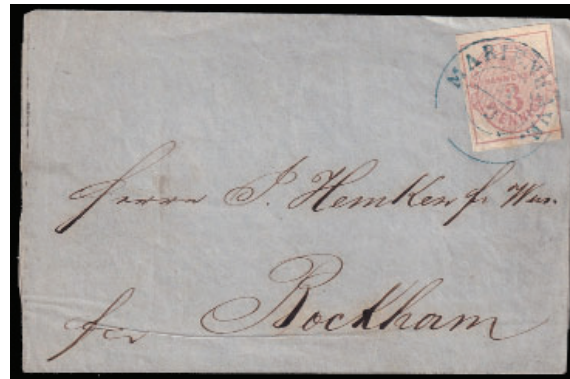 MARIENHAVE
HANNOVER
3
PFENNIGE
Herrn J. Hemken
fr Rockham